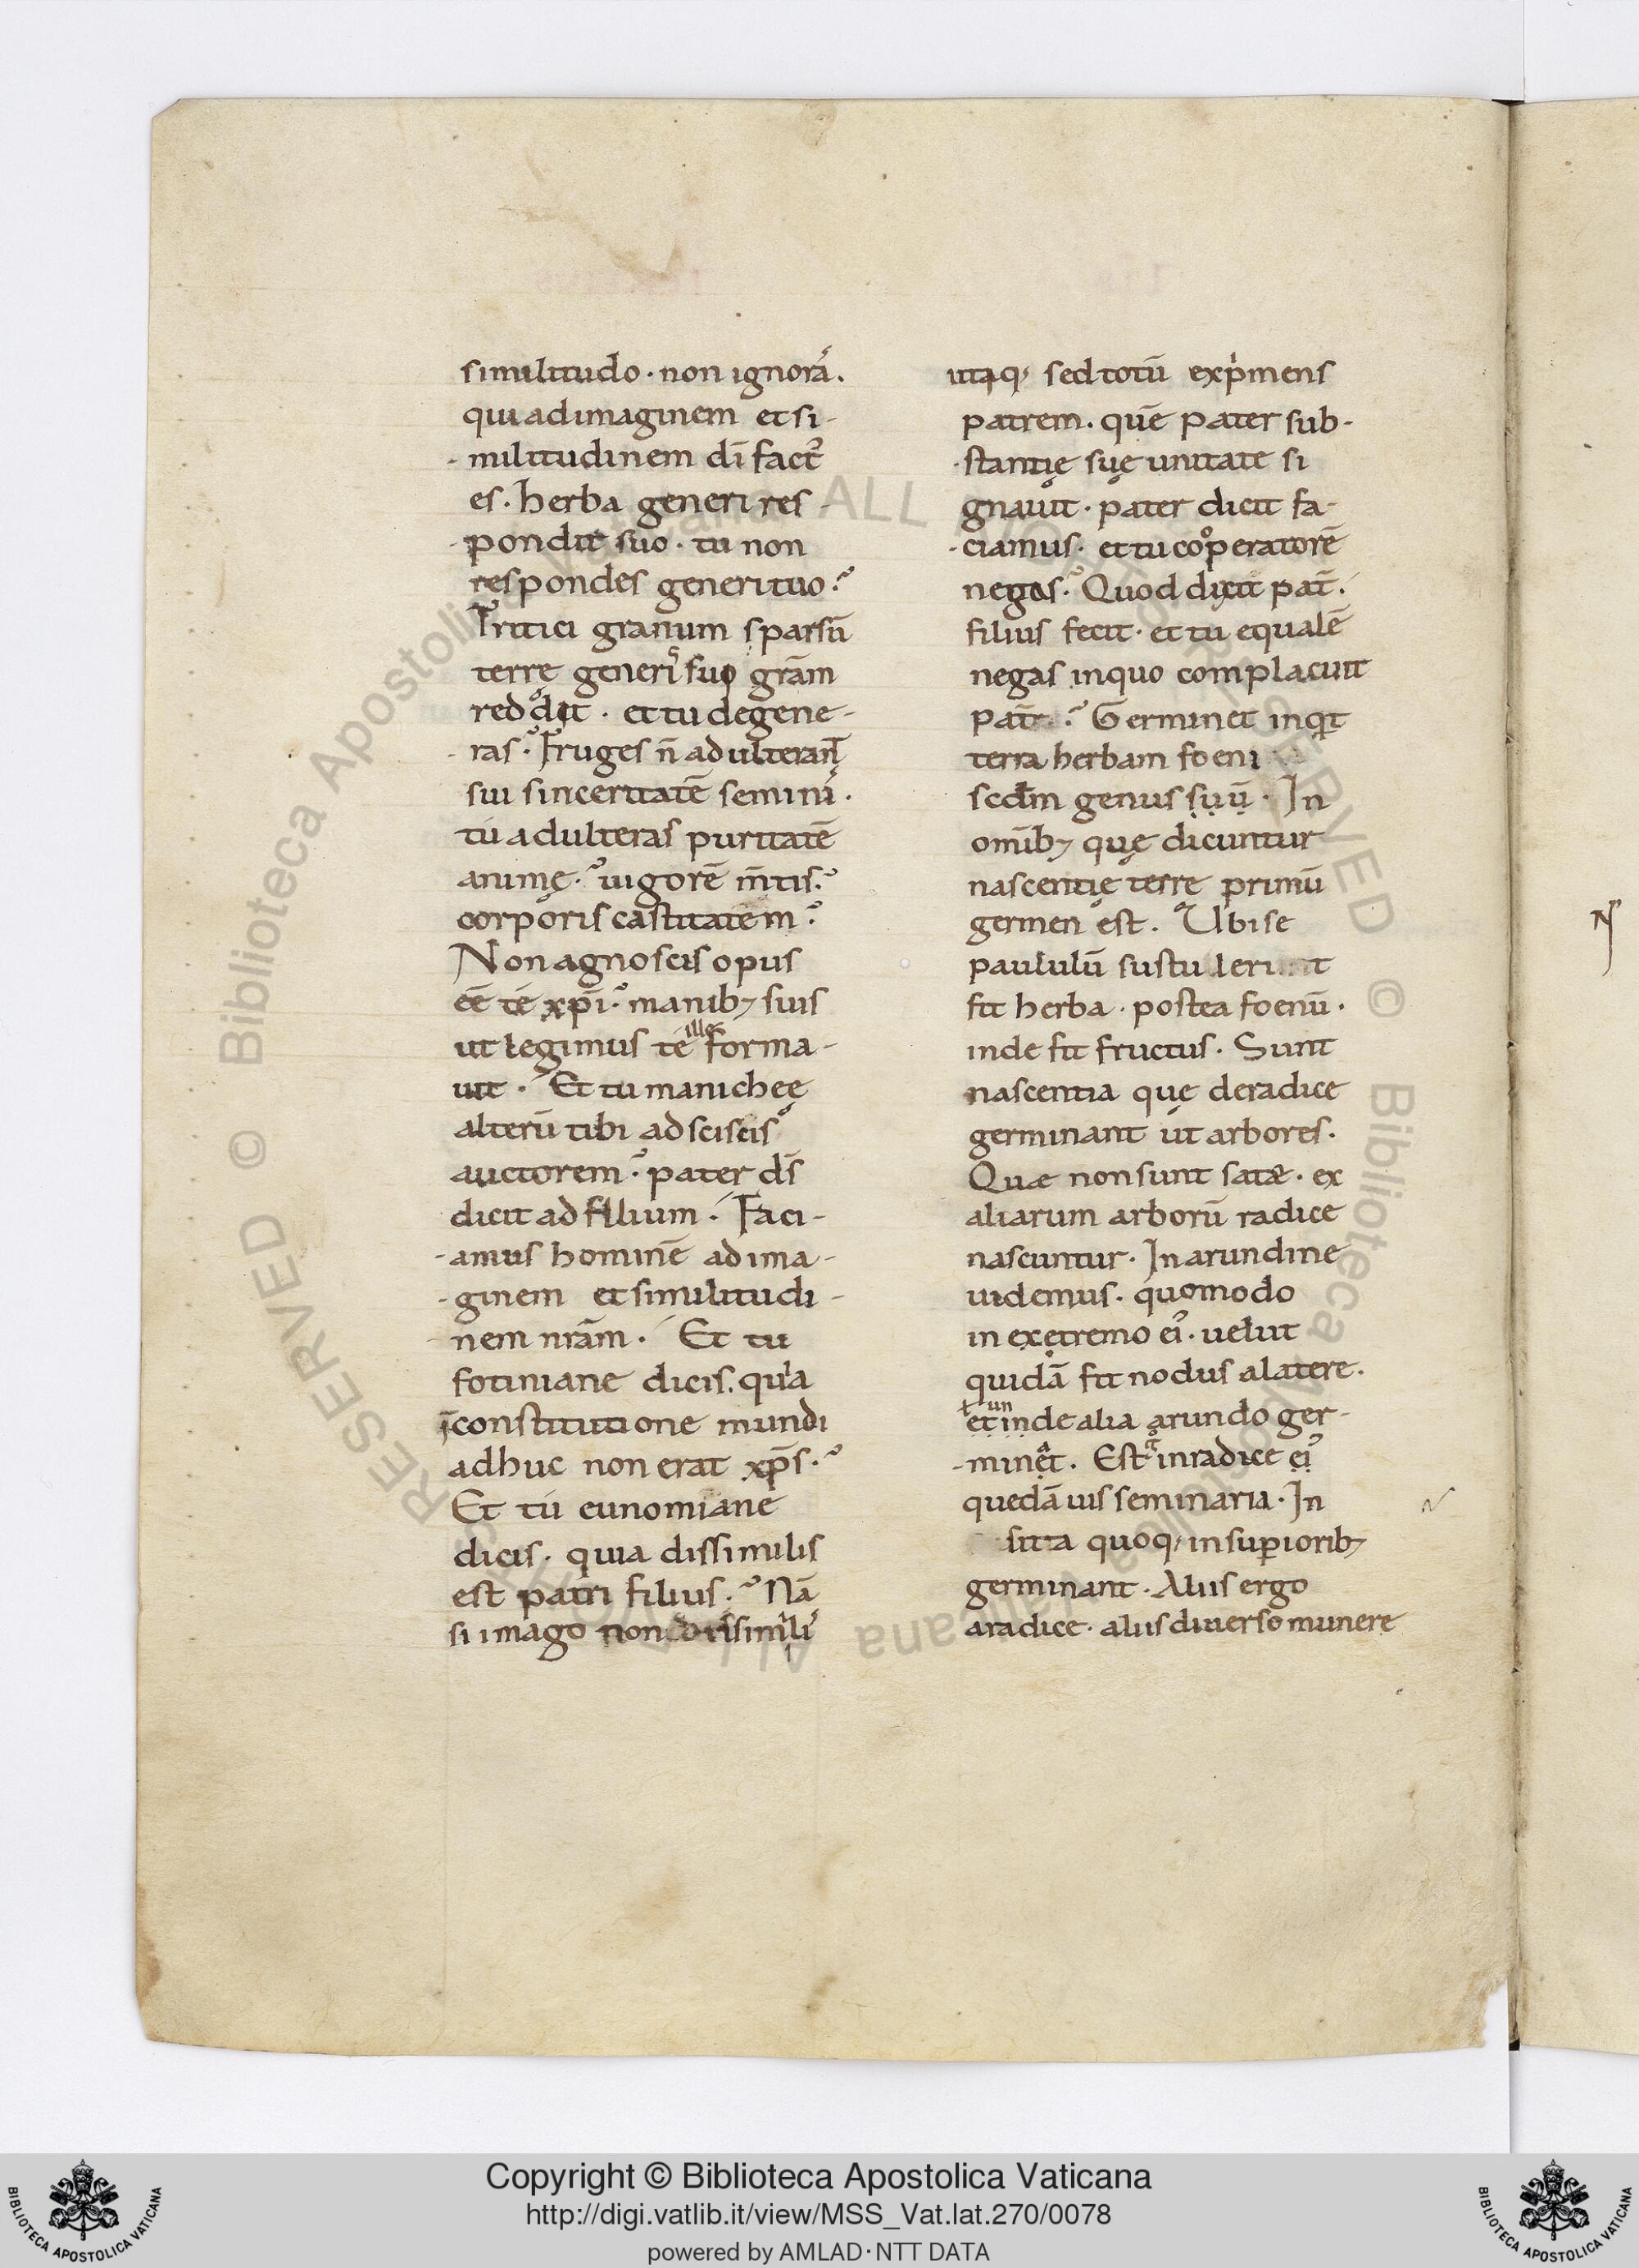 similitudo · non ignorā.
qui ad imaginem et si-
-militudinem dī factꝰ
es · herba generi res-
-pondit suo · tu non
respondes generi tuo ·?
Tritici granum sparsū
terrę generi sui grām
reddit · et tu degene-
-ras ·? Fruges n̄ adulteran̄t
sui sinceritatē semini ·
tú adulteras puritatē
animę ·? uigorē m̄tis ·?
corporis castitatem ·?
Non agnoscis opus
eē té xp̄i ·? manib; suis
ut legimus té ille forma-
uit · Et tu manicheę
alterū tibi adsciscis
auctorem ·? pater d̄s
dicit ad filium · Faci-
-amus hominē ad ima-
-ginem et similitudi-
-nem nrām · Et tu
fotiniane dicis · quia
ī constitutione mundi
adhuc non erat xp̄s ·?
Et tú eunomiane
dicis · quia dissimilis
est patri filius ·? Nā
si imago non dissimilis
utiq; sed totū exprimens
patrem · quē pater sub-
·stantię suę unitate si
gnauit · pater dicit fa-
-ciamus · et tu cooperatorē
negas ·? Quod dicit pat̄ ·
filius fecit · et tu equalē
negas in quo complacuit
patri ·? Germinet inqt
terra herbam foeni
scdm genus suū · In
omib; quę dicuntur
nascentię terrę primū
germen est · Ubi se
paululū sustulerint
fit herba · postea foenū ·
inde fit fructus · Sunt
nascentia quę de radice
germinant ut arbores ·
Quae non sunt satæ · ex
aliarum arborū radice
nascuntur · In arundine
uidemus · quomodo
in extremo eiꝰ · uelut
quidā fit nodus a latere ·
et inde alia arundo ger-
-minet · Est in radice eiꝰ
quedā uis seminaria · In
sita quoq; in superiorib;
germinant · Aliis ergo
a radice · aliis diuerso munere
Copyright © Biblioteca Apostolica Vaticana
http://digi.vatlib.it/view/MSS_Vat.lat.270/0078
powered by AMLAD·NTT DATA